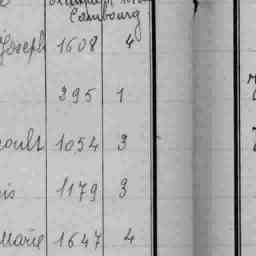 Combourg
Joseph 1608 4
295 1
1054 3
1179 3
Marie 1647 4